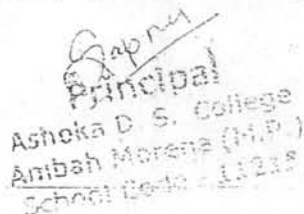 Principal
Ashoka D. S. College
Ambah Morena (M.P.)
School Code